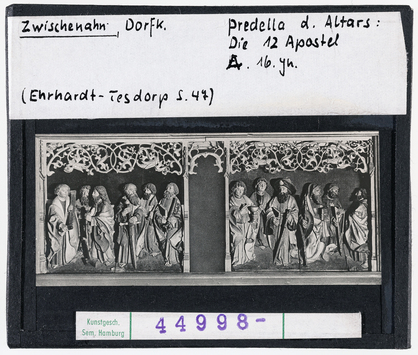 Zwischenahn, Dorfk.
Predella d. Altars:
Die 12 Apostel
A. 16. Jh.
(Ehrhardt-Tesdorp S. 47)
Kunstgesch.
Sem. Hamburg
44998-